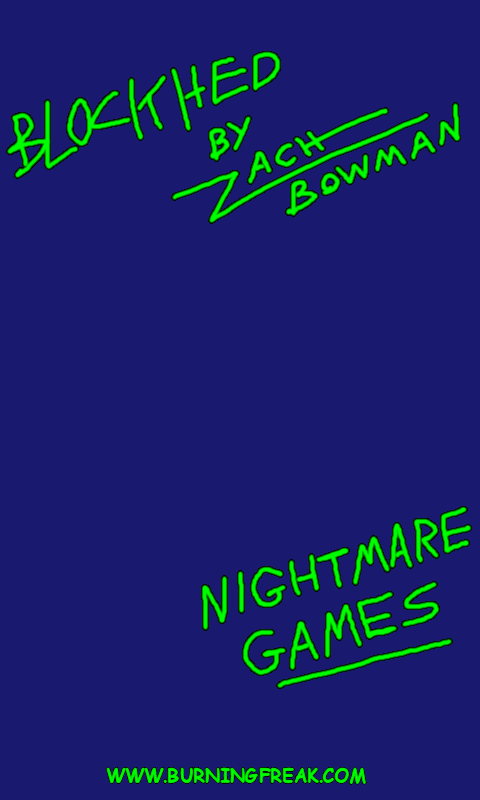 BLOCKHED
BY
ZACH
BOWMAN
NIGHTMARE
GAMES
WWW.BURNINGFREAK.COM